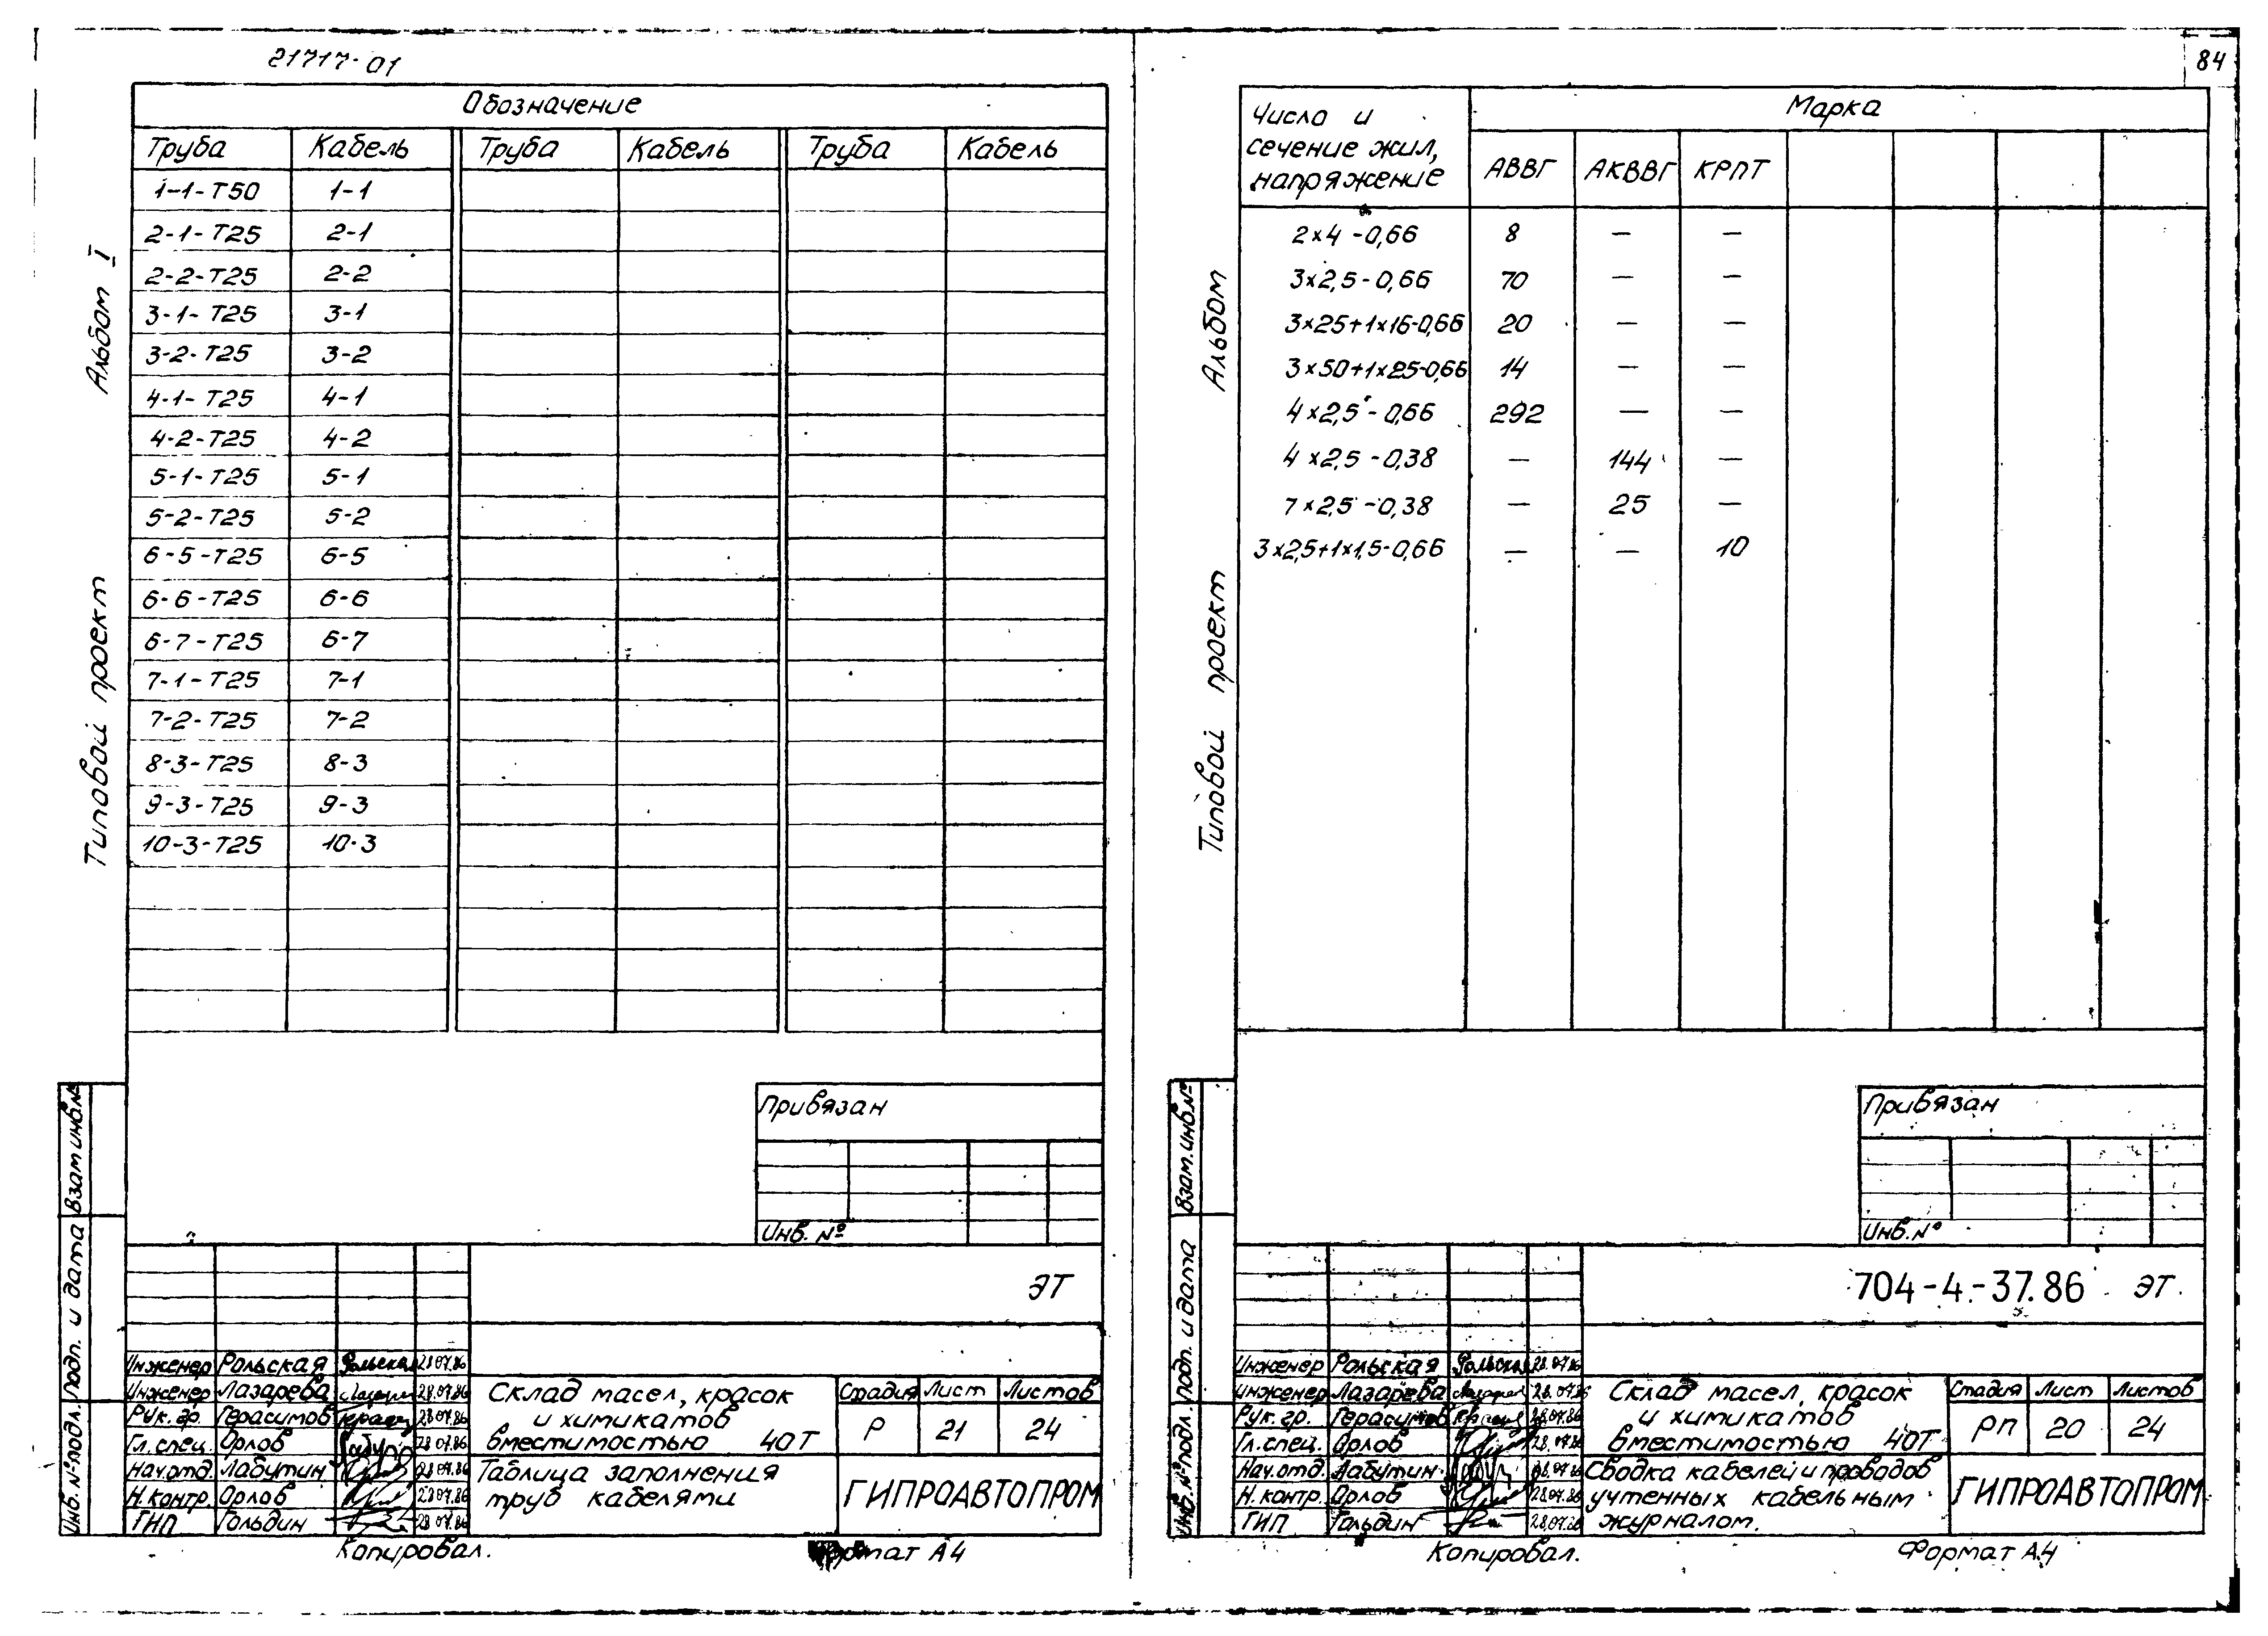 21717-01
84
Обозначение
Труба Кабель Труба Кабель Труба Кабель
1-1-Т50 1-1
2-1-Т25 2-1
2-2-Т25 2-2
3-1-Т25 3-1
3-2-Т25 3-2
4-1-Т25 4-1
4-2-Т25 4-2
5-1-Т25 5-1
5-2-Т25 5-2
6-5-Т25 6-5
6-6-Т25 6-6
6-7-Т25 6-7
7-1-Т25 7-1
7-2-Т25 7-2
8-3-Т25 8-3
9-3-Т25 9-3
10-3-Т25 10-3
Типовой проект Альбом I
Привязан
Инв. №
Взам инв.№
Подп. и дата
Инв. № подл.
ЭТ
Инженер Рольская Рольская 28.07.86
Инженер Лазарева 28.07.86
Рук. гр. Герасимов 28.07.86
Гл. спец. Орлов 28.07.86
Нач.отд. Лабутин 28.07.86
Н.контр. Орлов 28.07.86
ГИП Гольдин 28.07.86
Склад масел, красок
и химикатов
вместимостью 40Т
Стадия Лист Листов
Р 21 24
Таблица заполнения
труб кабелями
ГИПРОАВТОПРОМ
Копировал.
Формат А4
Число и
сечение жил,
напряжение
Марка
АВВГ АКВВГ КРПТ
2×4-0,66 8 — —
3×2,5-0,66 70 — —
3×25+1×16-0,66 20 — —
3×50+1×25-0,66 14 — —
4×2,5-0,66 292 — —
4×2,5-0,38 — 144 —
7×2,5-0,38 — 25 —
3×2,5+1×1,5-0,66 — — 10
Типовой проект Альбом
Привязан
Инв. №
Взам. инв.№
Подп. и дата
Инв. № подл.
704-4-37.86 ЭТ
Инженер Рольская Рольская 28.07.86
Инженер Лазарева 28.07.86
Рук. гр. Герасимов 28.07.86
Гл. спец. Орлов 28.07.86
Нач.отд. Лабутин 28.07.86
Н.контр. Орлов 28.07.86
ГИП Гольдин 28.07.86
Склад масел, красок
и химикатов
вместимостью 40Т
Стадия Лист Листов
РП 20 24
Сводка кабелей и проводов
учтенных кабельным
журналом.
ГИПРОАВТОПРОМ
Копировал.
Формат А4